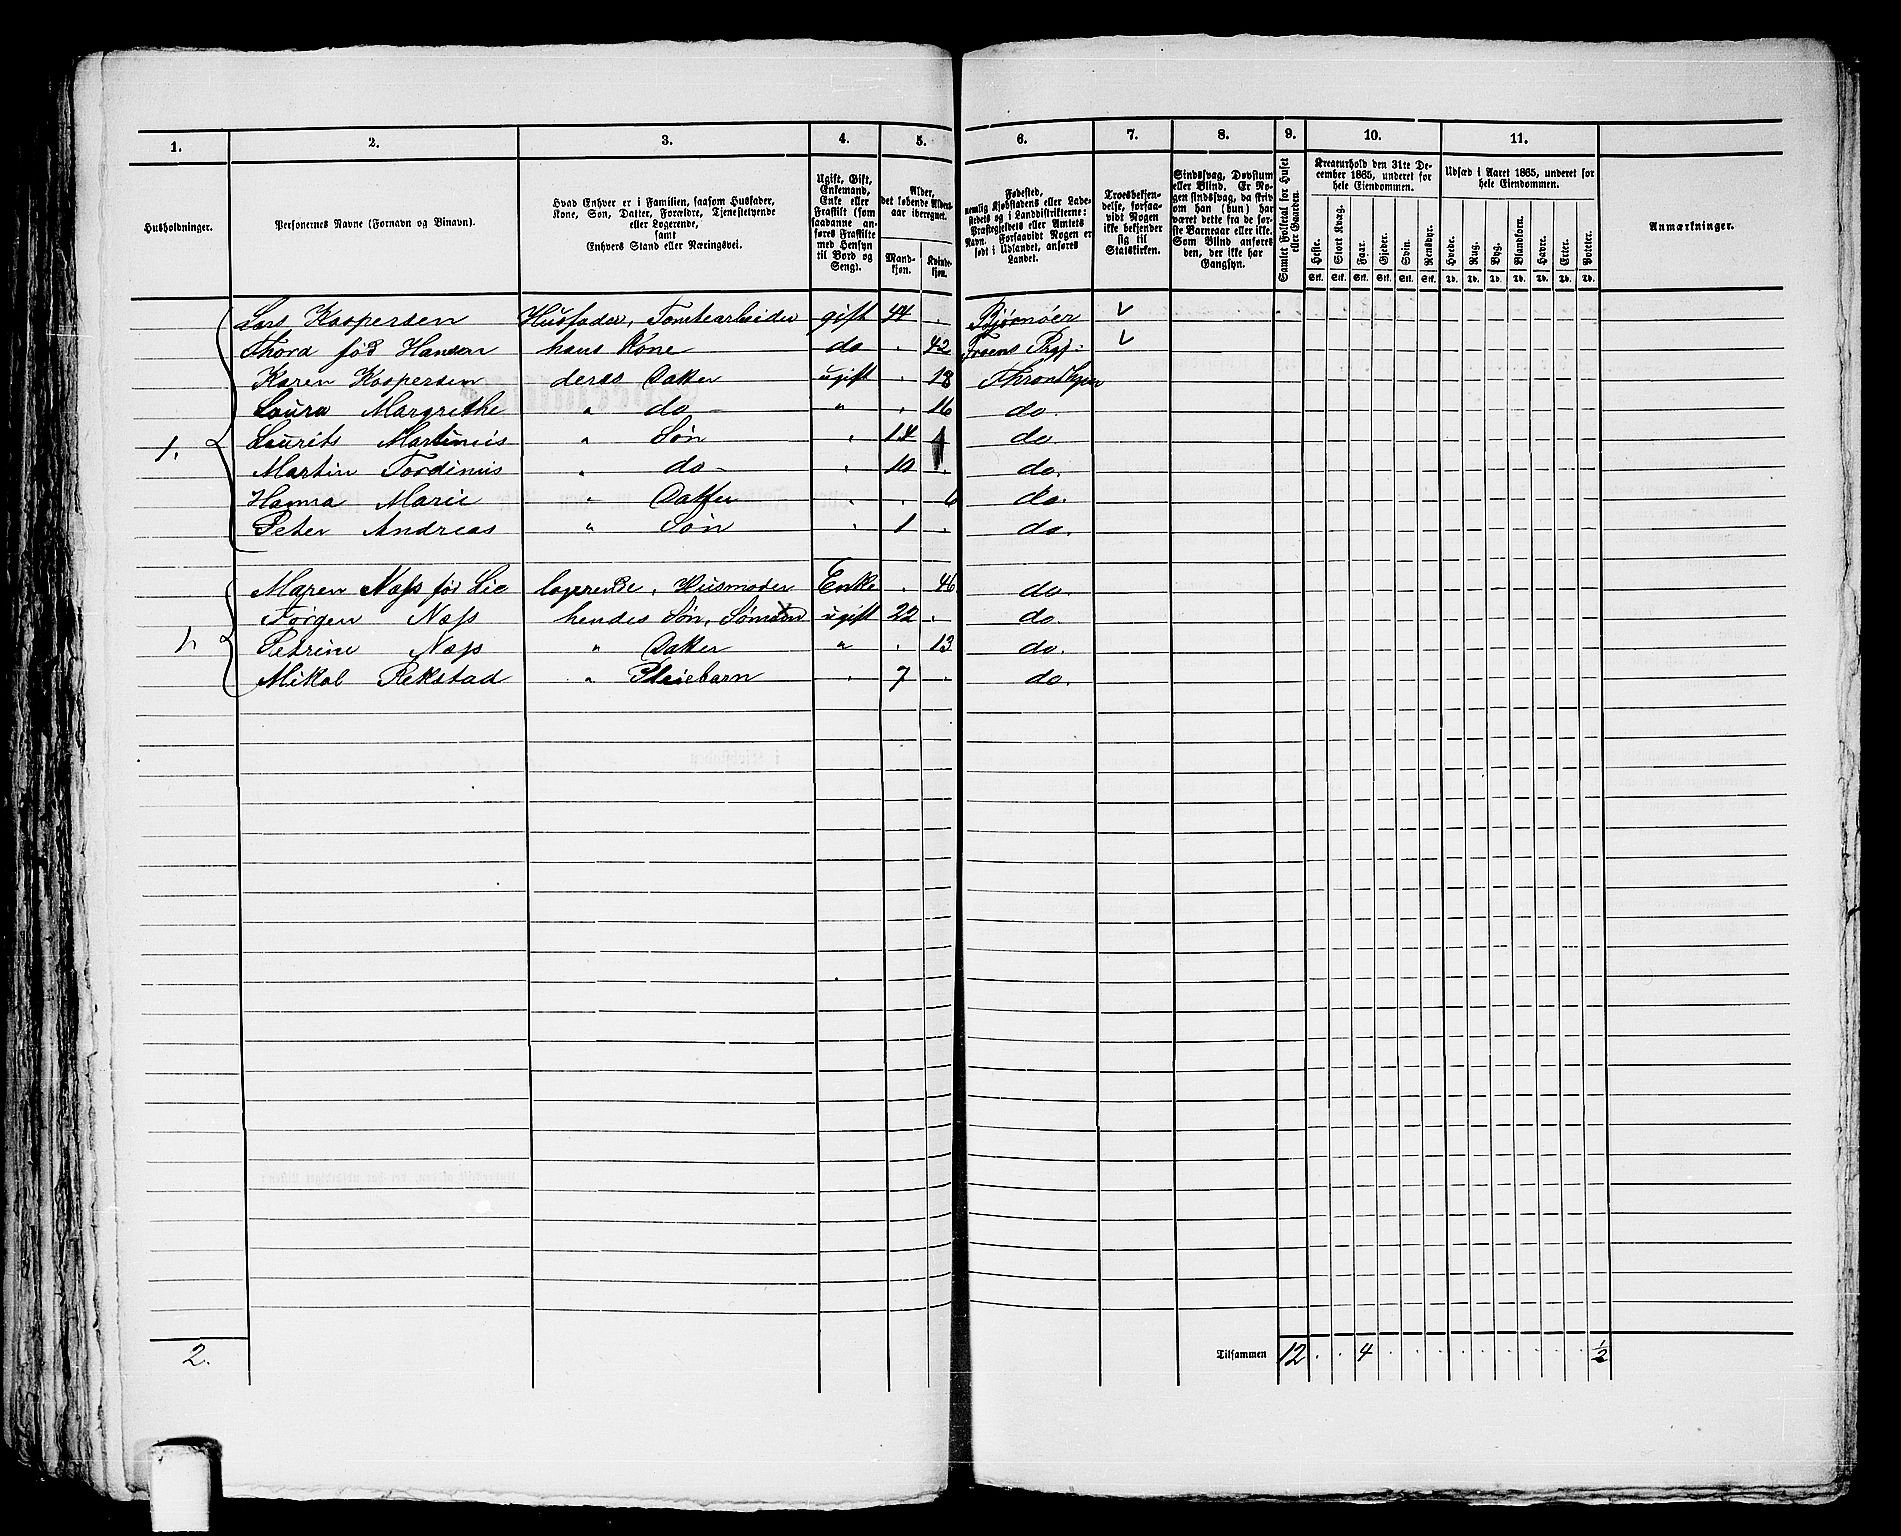 1. 2. 3. 4. 5. 6. 7. 8. 9. 10. 11.
Husholdninger.
Personernes Navne (Fornavn og Binavn).
Hvad Enhver er i Familien, saasom Husfader,
Kone, Søn, Datter, Forældre, Tjenestetyende
eller Logerende,
samt
Enhvers Stand eller Næringsvei.
Ugift, Gift,
Enkemand,
Enke eller
Fraskilt (som
saadanne an-
føres Fraskilte
med Hensyn
til Bord og
Seng).
Alder,
det løbende Alders-
aar iberegnet.
Mand-
kjøn.
Kvinde-
kjøn.
Fødested,
nemlig Kjøbstadens eller Lade-
stedets og i Landdistrikterne:
Præstegjeldets eller Amtets
Navn. Forsaavidt Nogen er
født i Udlandet, anføres
Landet.
Troesbekjen-
delse, forsaa-
vidt Nogen
ikke bekjender
sig til
Statskirken.
Sindssvag, Døvstum
eller Blind. Er No-
gen sindssvag, da skriv
om han (hun) har
været dette fra de før-
ste Barneaar eller ikke.
Som Blind anføres
den, der ikke har
Gangsyn.
Samlet Folketal for Huset
eller Gaarden.
Kreaturhold den 31te De-
cember 1865, underet for
hele Eiendommen.
Heste. Stort Kvæg. Faar. Gjeder. Svin. Rensdyr.
Stk. Stk. Stk. Stk. Stk. Stk.
Udsæd i Aaret 1865, underet for
hele Eiendommen.
Hvede. Rug. Byg. Blandkorn. Havre. Erter. Poteter.
Td. Td. Td. Td. Td. Td. Td.
Anmærkninger.
Lars Kaspersen Husfader, Tomtearbeider gift 44 . Bjørnøer ✓
Thora fød Hansen hans Kone do . 42 Froens Prgj. ✓
Karen Kaspersen deres Datter ugift . 18 Throndhjem
Laura Margrethe " do - " . 16 do.
1. Laurits Martinus " Søn . 14 do
Martin Tordinus " do - . 10 . do.
Hanna Marie " Datter . . 6 do.
Peter Andreas " Søn . 1 . do.
Maren Næss fød Lie logerende, Husmoder Enke . 46 do.
Jørgen Næss hendes Søn, Sømand ugift 22 . do.
1. Petrine Næss " Datter " . 13 do.
Mikal Rekstad " Pleiebarn . 7 . do.
2. Tilsammen 12 . . 4 . . . . . . . . . ½